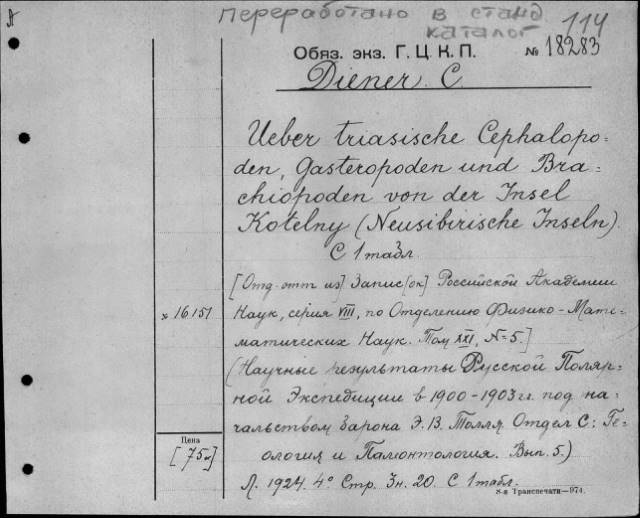 А
переработано в станд
каталог
114
Обяз. экз. Г. Ц. К. П. № 18283
Diener. C.
Ueber triasische Cephalopo-
den, Gasteropoden und Bra-
chiopoden von der Insel
Kotelny (Neusibirische Inseln).
С 1 табл.
[Отд. отт из] Запис[ок] Российской Академии
× 16151
Наук, серия VIII, по Отделению Физико-Мате-
матических Наук. Том XXI, № 5.]
(Научные результаты Русской Поляр-
ной Экспедиции в 1900-1903 гг. под на-
чальством барона Э. В. Толля Отдел С: Ге-
Цена
[75 к]
ология и Палеонтология. Вып. 5.)
Л. 1924. 4° Стр. 3н. 20. С 1 табл.
8-я Транспечати—974.